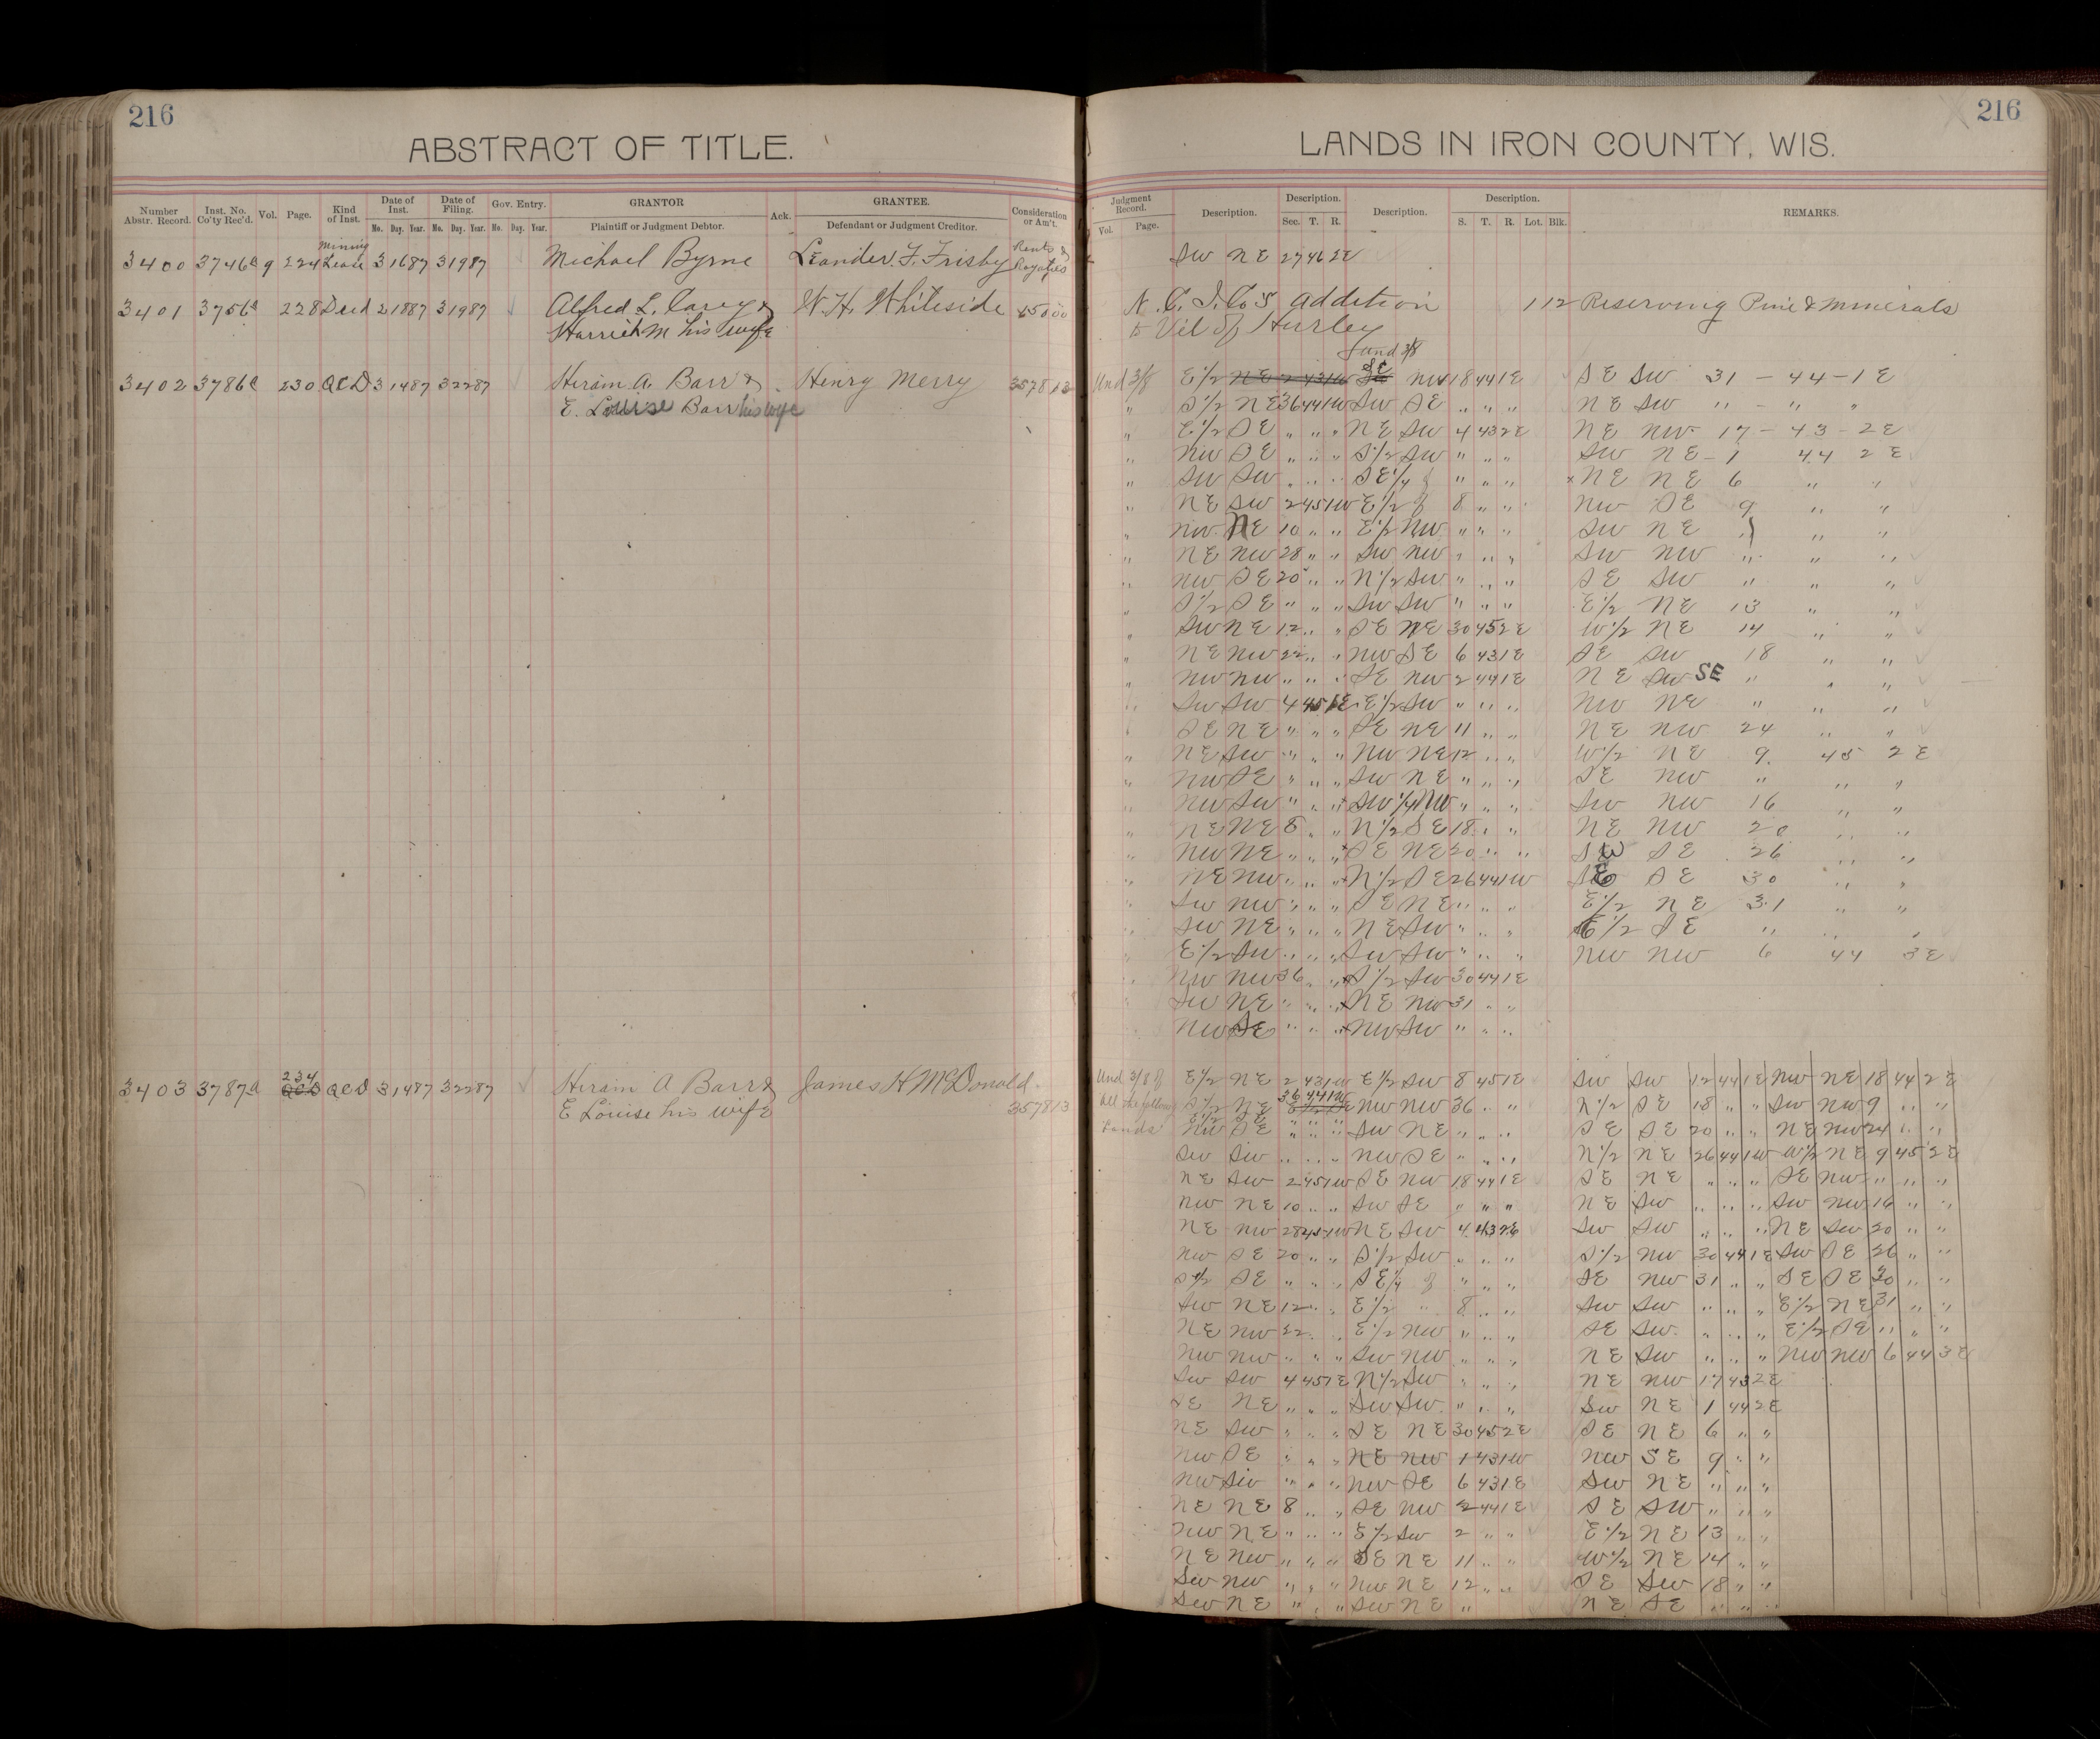 216
ABSTRACT OF TITLE.
Number Abstr. Record. Inst. No. Co'ty Rec'd. Vol. Page. Kind of Inst. Date of Inst. Date of Filing. Gov. Entry. GRANTOR Ack. GRANTEE. Consideration or Am't.
Mo. Day. Year. Mo. Day. Year. Mo. Day. Year. Plaintiff or Judgment Debtor. Defendant or Judgment Creditor.
3400 3746a 9 224 Mining Lease 3 16 87 3 19 87 Michael Byrne Leander F. Frisby Rents & Royalties
3401 3756a 228 Deed 2 18 87 3 19 87 Alfred L. Carey & W. H. Whiteside
Harriet M his wife
3402 3786a 230 QCD 3 14 87 3 22 87 Hiram A. Barr & Henry Merry 3578 13
E. Louise Barr his wife
3403 3787a 234 QCD 3 14 87 3 22 87 Hiram A Barr & James H McDonald
E Louise his wife 3578 13
216
LANDS IN IRON COUNTY, WIS.
Judgment Record. Description. Description. Description. Description. REMARKS.
Vol. Page. Sec. T. R. S. T. R. Lot. Blk.
SW NE 27 46 2E
N. C. I. Co's addition 1 12 Reserving Pine & Minerals
to Vil of Hurley
und 3/8
Und 3/8 E 1/2 NE 2 43 1W SE NW 18 44 1E SE SW 31 - 44 - 1E
" S 1/2 NE 36 44 1W SW SE " " " NE SW " - " "
" E 1/2 SE " " " NE SW 4 43 2E NE NW 17 - 43 - 2E
" NW SE " " " S 1/2 SW " " " SW NE - 1 44 2E
" SW SW " " " SE 1/4 of " " " NE NE 6 " "
" NE SW 2 45 1W E 1/2 of 8 " " NW SE 9 " "
" NW NE 10 " " E 1/2 NW " " " SW NE " " "
" NE NW 28 " " SW NW " " " SW NW " " "
" NW SE 20 " " N 1/2 SW " " " SE SW " " "
" S 1/2 SE " " " SW SW " " " E 1/2 NE 13 " "
" SW NE 12 " " SE NE 30 45 2E W 1/2 NE 14 " "
" NE NW 22 " " NW SE 6 43 1E SE SW 18 " "
" NW NW " " " SE NW 2 44 1E NE SW SE " " "
" SW SW 4 45 1E E 1/2 SW " " " NW NE " " "
" SE NE " " " SE NE 11 " " NE NW 24 " "
" NE SW " " " NW NE 12 " " W 1/2 NE 9 45 2E
" NW SE " " " SW NE " " " SE NW " " "
" NW SW " " " SW 1/4 NW " " " SW NW 16 " "
" NE NE 8 " " N 1/2 SE 18 " " NE NW 20 " "
" NW NE " " " SE NE 20 " " SW SE 26 " "
" NE NW " " " N 1/2 SE 26 44 1W SE SE 30 " "
" SW NW " " " SE NE " " " E 1/2 NE 31 " "
" SW NE " " " NE SW " " " E 1/2 SE " " "
" E 1/2 SW " " " SW SW " " " NW NW 6 44 3E
" NW NW 36 " " S 1/2 SW 30 44 1E
" SW NE " " " NE NW 31 " "
" NW SE " " " NW SW " " "
Und 3/8 of E 1/2 NE 2 43 1W E 1/2 SW 8 45 1E SW SW 12 44 1E NW NE 18 44 2E
all the following S 1/2 NE 36 44 1W NW NW 36 " " N 1/2 SE 18 " " SW NW 9 " "
E 1/2 SE
Lands NW SE " " " SW NE " " " SE SE 20 " " NE NW 24 " "
SW SW " " " NW SE " " " N 1/2 NE 26 44 1W W 1/2 NE 9 45 2E
NE SW 2 45 1W SE NW 18 44 1E SE NE " " " SE NW " " "
NW NE 10 " " SW SE " " " NE SW " " " SW NW 16 " "
NE NW 28 45 1W NE SW 4 43 2E SW SW " " " NE SW 20 " "
NW SE 20 " " S 1/2 SW " " " S 1/2 NW 30 44 1E SW SE 26 " "
S 1/2 SE " " " SE 1/4 of " " " SE NW 31 " " SE SE 30 " "
SW NE 12 " " E 1/2 " 8 " " SW SW " " " E 1/2 NE 31 " "
NE NW 22 " " E 1/2 NW " " " SE SW " " " E 1/2 SE " " "
NW NW " " " SW NW " " " NE SW " " " NW NW 6 44 3E
SW SW 4 45 1E N 1/2 SW " " " NE NW 17 43 2E
SE NE " " " SW SW " " " SW NE 1 44 2E
NE SW " " " SE NE 30 45 2E SE NE 6 " "
NW SE " " " NE NW 1 43 1W NW SE 9 " "
NW SW " " " NW SE 6 43 1E SW NE " " "
NE NE 8 " " SE NW 2 44 1E SE SW " " "
NW NE " " " E 1/2 SW 2 " " E 1/2 NE 13 " "
NE NW " " " SE NE 11 " " W 1/2 NE 14 " "
SW NW " " " NW NE 12 " " SE SW 18 " "
SW NE " " " SW NE " NE SE " " "